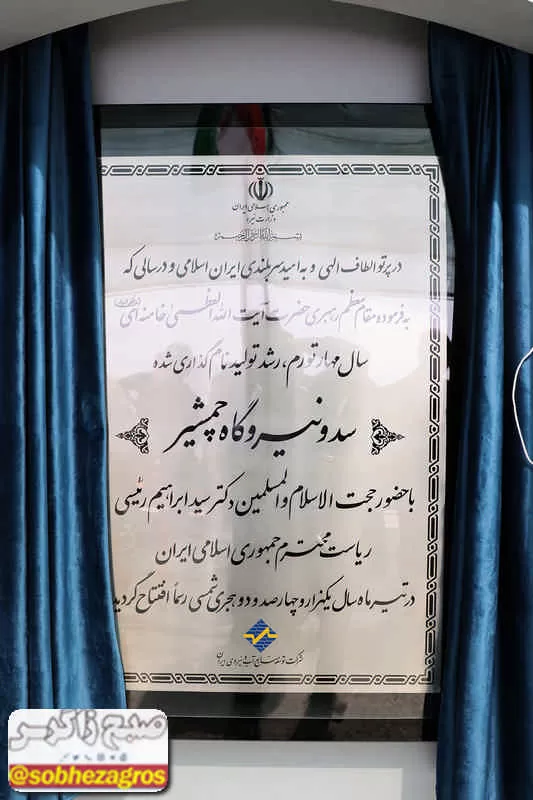 جمهوری اسلامی ایران
وزارت نیرو
بسم الله الرحمن الرحیم
در پرتو الطاف الهی و به امید سربلندی ایران اسلامی و در سالی که
به فرموده مقام معظم رهبری حضرت آیت الله العظمی خامنه ای
سال مهار تورم، رشد تولید نام گذاری شده
سد و نیروگاه چمشیر
با حضور حجت الاسلام والمسلمین دکتر سید ابراهیم رئیسی
ریاست محترم جمهوری اسلامی ایران
در تیر ماه سال یکهزار و چهارصد و دو هجری شمسی رسماً افتتاح گردید
شرکت توسعه منابع آب و نیروی ایران
صبح زاگرس
@sobhezagros